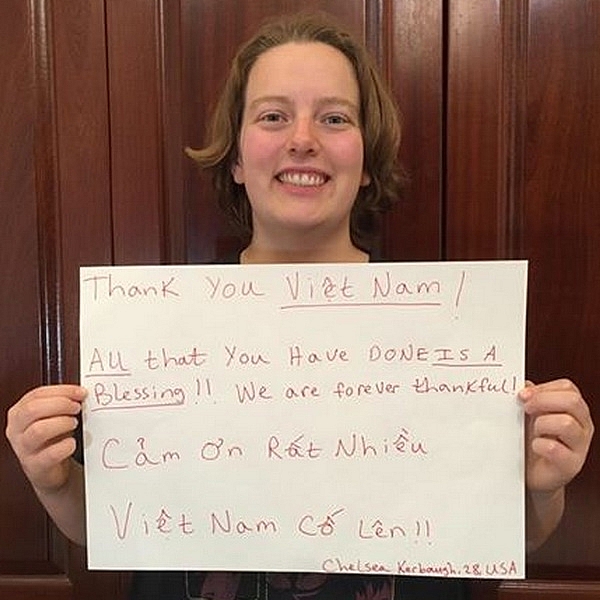 Thank You Việt Nam!
All that You Have DONE IS A
Blessing!! We are forever thankful!
Cảm ơn Rất Nhiều
Việt Nam Cố Lên!!
Chelsea Karbaugh, 28, USA